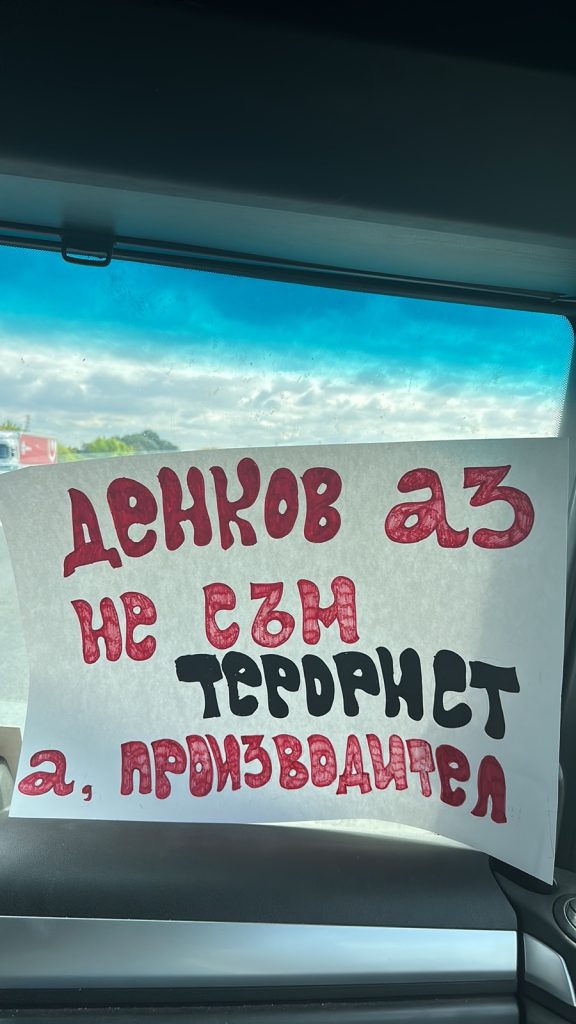 Денков аз
не съм
терорист
а, производител